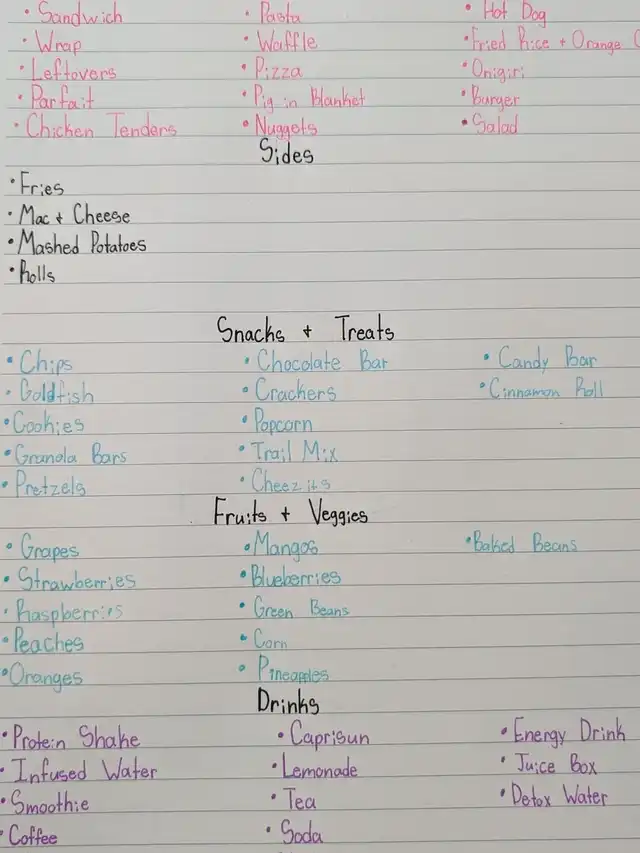 • Sandwich • Pasta • Hot Dog
• Wrap • Waffle • Fried Rice + Orange
• Leftovers • Pizza • Onigiri
• Parfait • Pig in Blanket • Burger
• Chicken Tenders • Nuggets • Salad
Sides
• Fries
• Mac + Cheese
• Mashed Potatoes
• Rolls
Snacks + Treats
• Chips • Chocolate Bar • Candy Bar
• Goldfish • Crackers • Cinnamon Roll
• Cookies • Popcorn
• Granola Bars • Trail Mix
• Pretzels • Cheez its
Fruits + Veggies
• Grapes • Mangos • Baked Beans
• Strawberries • Blueberries
• Raspberries • Green Beans
• Peaches • Corn
• Oranges • Pineapples
Drinks
• Protein Shake • Caprisun • Energy Drink
• Infused Water • Lemonade • Juice Box
• Smoothie • Tea • Detox Water
• Coffee • Soda